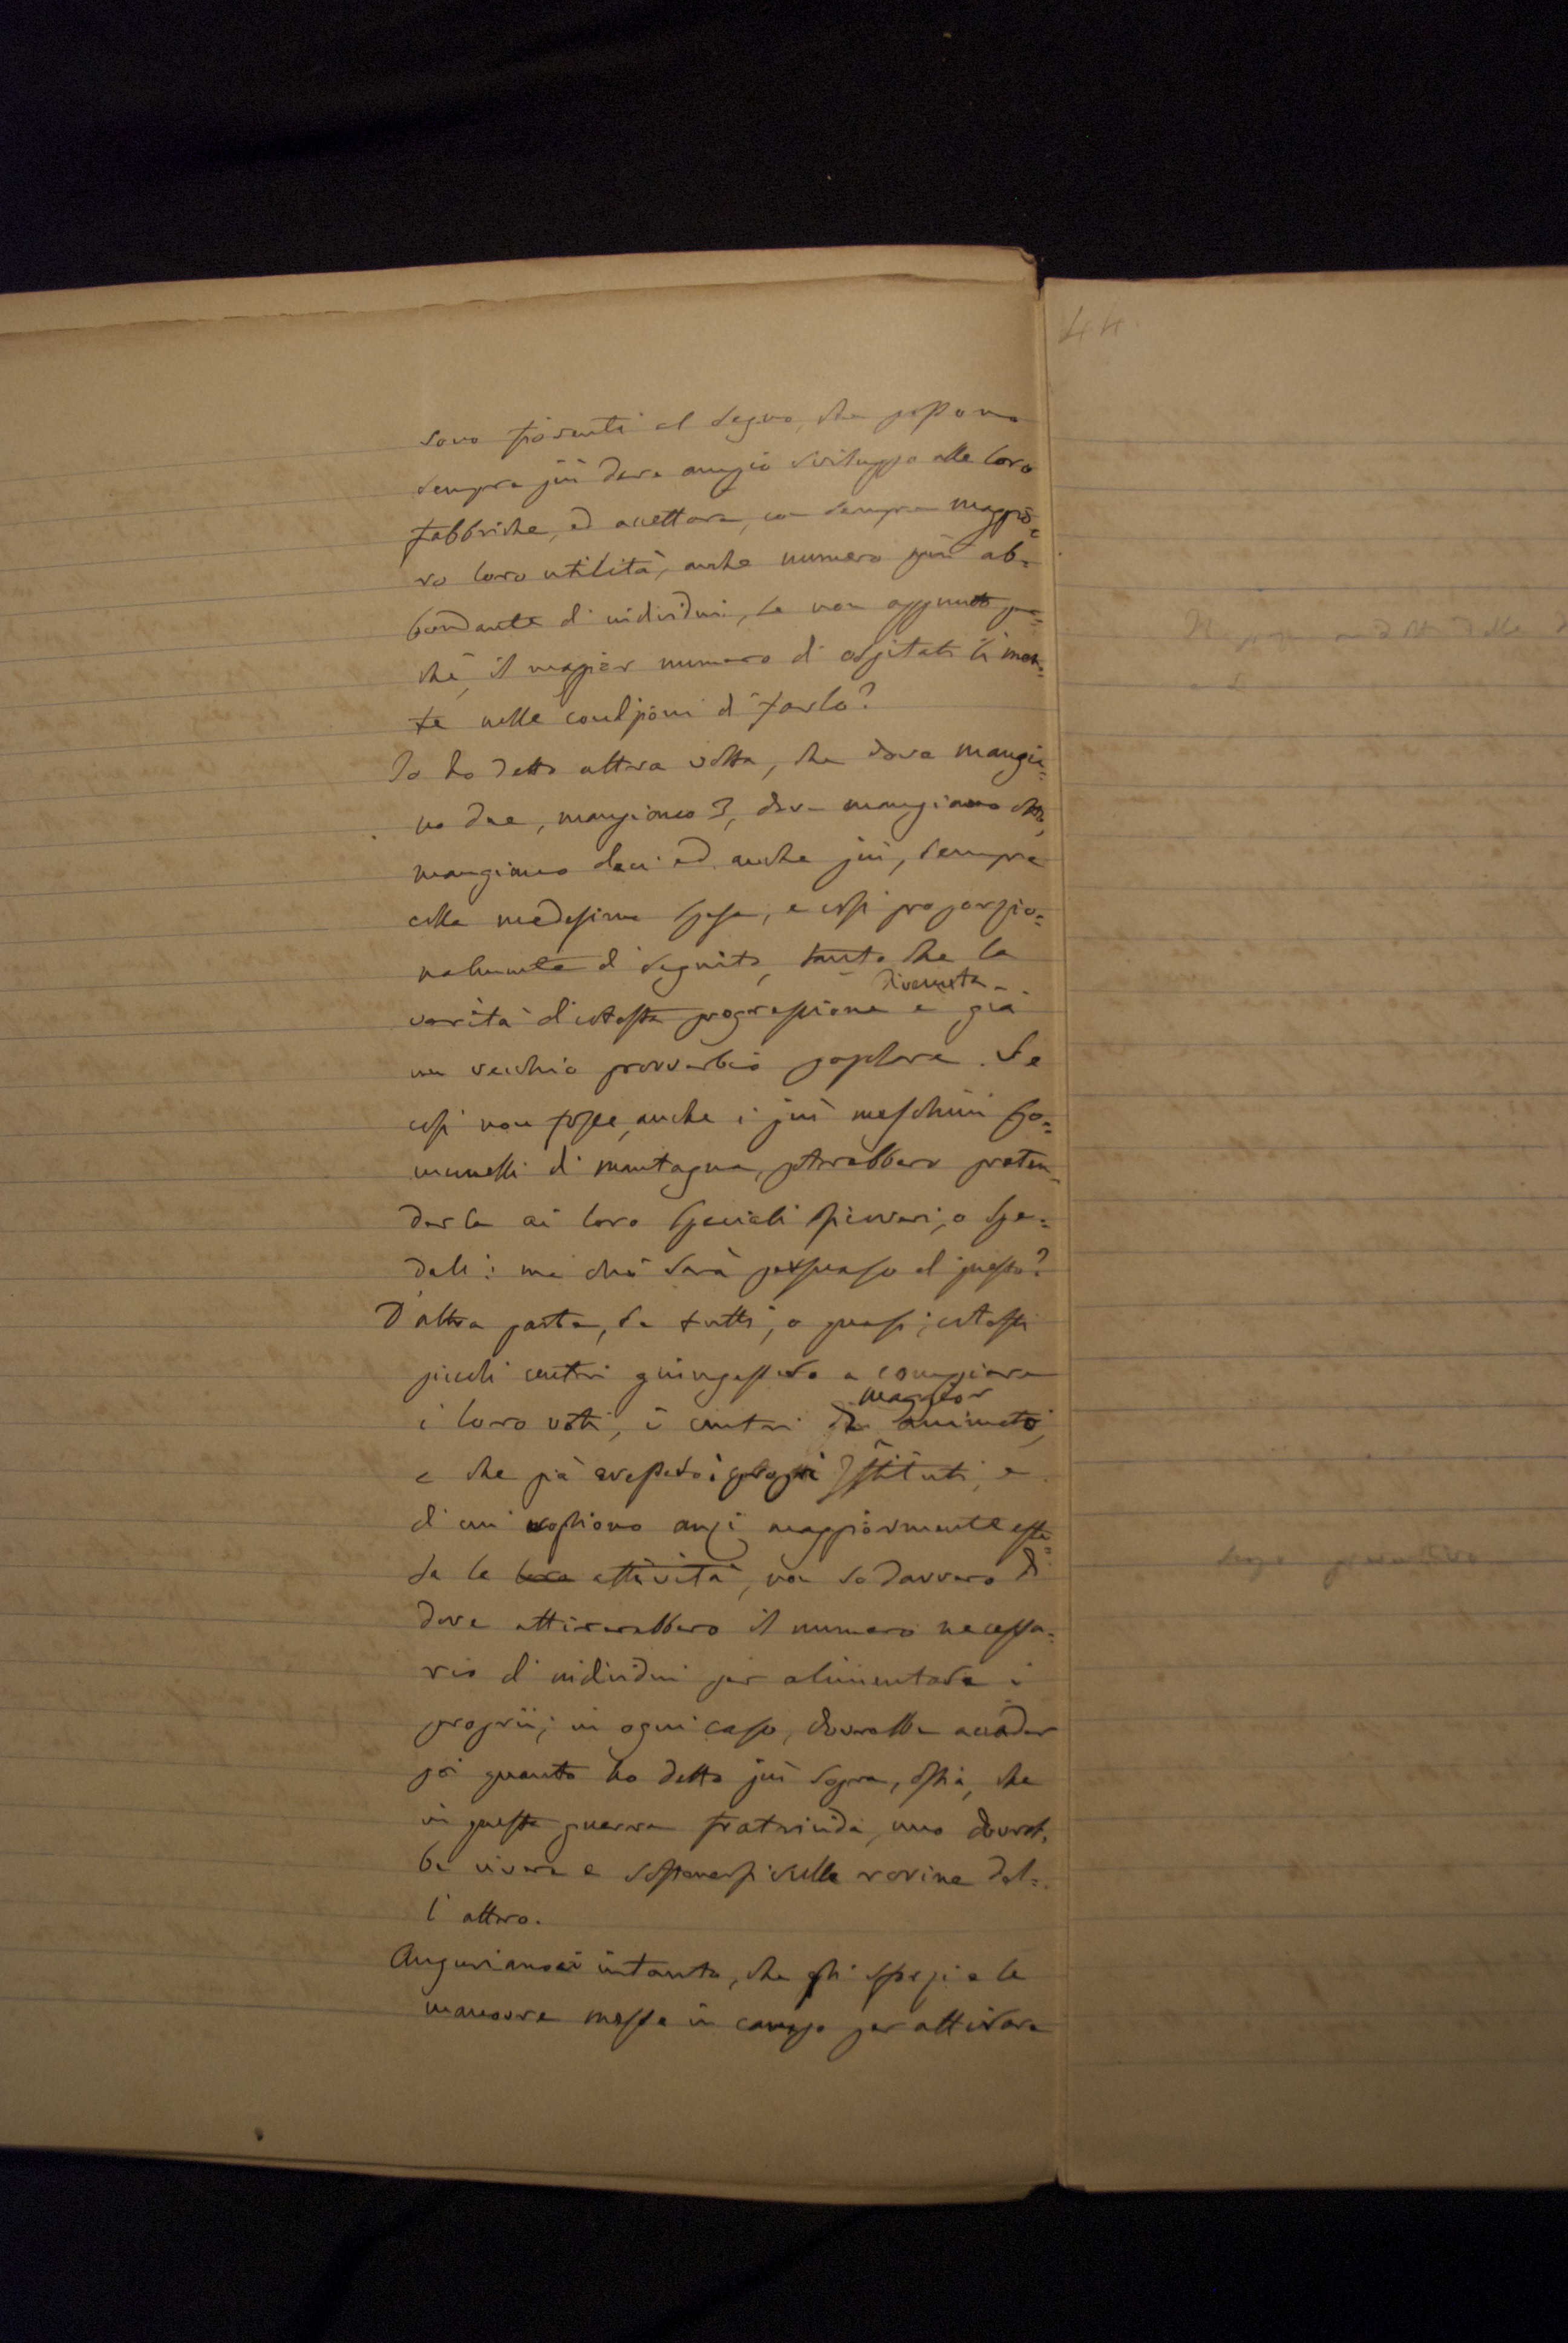 sono fiorenti al segno, che possono
sempre più dare ampio sviluppo alle loro
fabbriche, ed accettare, con sempre maggio=
re loro utilità, anche numero più ab=
bondante di individui, se non appunto per=
chè, il maggior numero di ospitati li met=
te nelle condizioni di farlo?
Io ho detto altra volta, che dove mangia=
no due, mangiano 3, dove mangiano otto,
mangiano dieci ed anche più, sempre
colla medesima spesa, e così proporzio=
nalmente di seguito, tanto che la
diventata
verità di cotesta progressione è già
un vecchio proverbio popolare. Se
così non fosse, anche i più meschini Co=
munelli di montagna, potrebbero preten=
derla ai loro speciali ricoveri, o spe=
dali: ma chi sarà persuaso di questo?
D'altra parte, se tutti, o quasi, cotesti
piccoli centri giungessero a compiere
maggior
i loro voti, i centri di animato,
e che già avessero i proprii Istituti, e
di cui vogliono anzi maggiormente este=
sa la loro attività, non so davvero di
dove attirerebbero il numero necessa=
rio di individui per alimentare i
proprii; in ogni caso, dovrebbe accader
poi quanto ho detto più sopra, ossia, che
in questa guerra fratricida, uno dovreb=
be vivere e sostenersi sulle rovine del=
l'altro.
Auguriamoci intanto, che gli sforzi e le
manovre messe in campo per attirare
44.